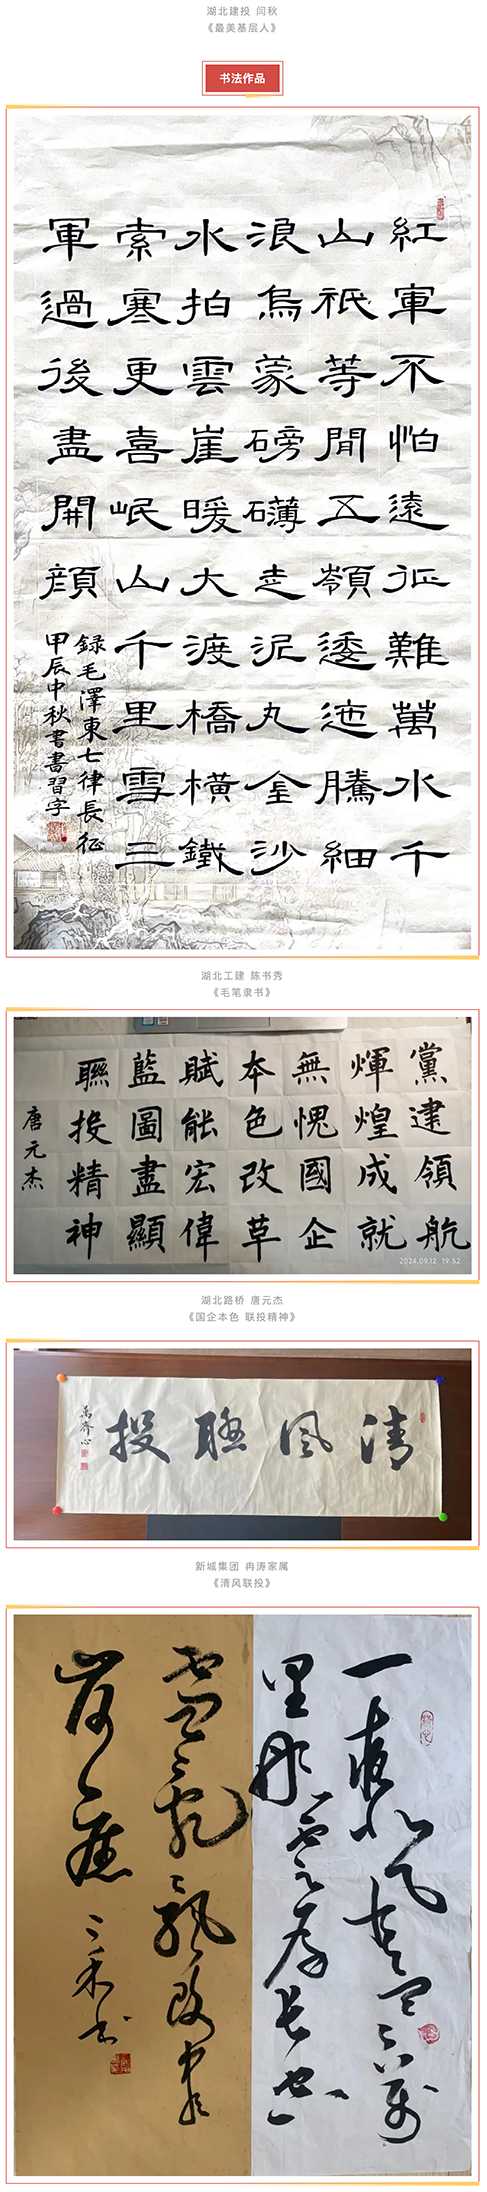 湖北建投 闫秋
《最美基层人》
书法作品
紅軍不怕遠征難萬水千
山祇等閒五嶺逶迤騰細
浪烏蒙磅礴走泥丸金沙
水拍雲崖暖大渡橋橫鐵
索寒更喜岷山千里雪三
軍過後盡開顔
錄毛澤東七律長征
甲辰中秋書書習字
湖北工建 陈书秀
《毛笔隶书》
黨建領航
煇煌成就
無愧國企
本色改草
賦能宏偉
藍圖盡顯
聯投精神
唐元杰
2024.09.12 19:52
湖北路桥 唐元杰
《国企本色 联投精神》
清风聯投
萬齊心
新城集团 冉涛家属
《清风联投》
一夜北风寒万
里彤雲厚長空
雪亂飄改盡江
山舊